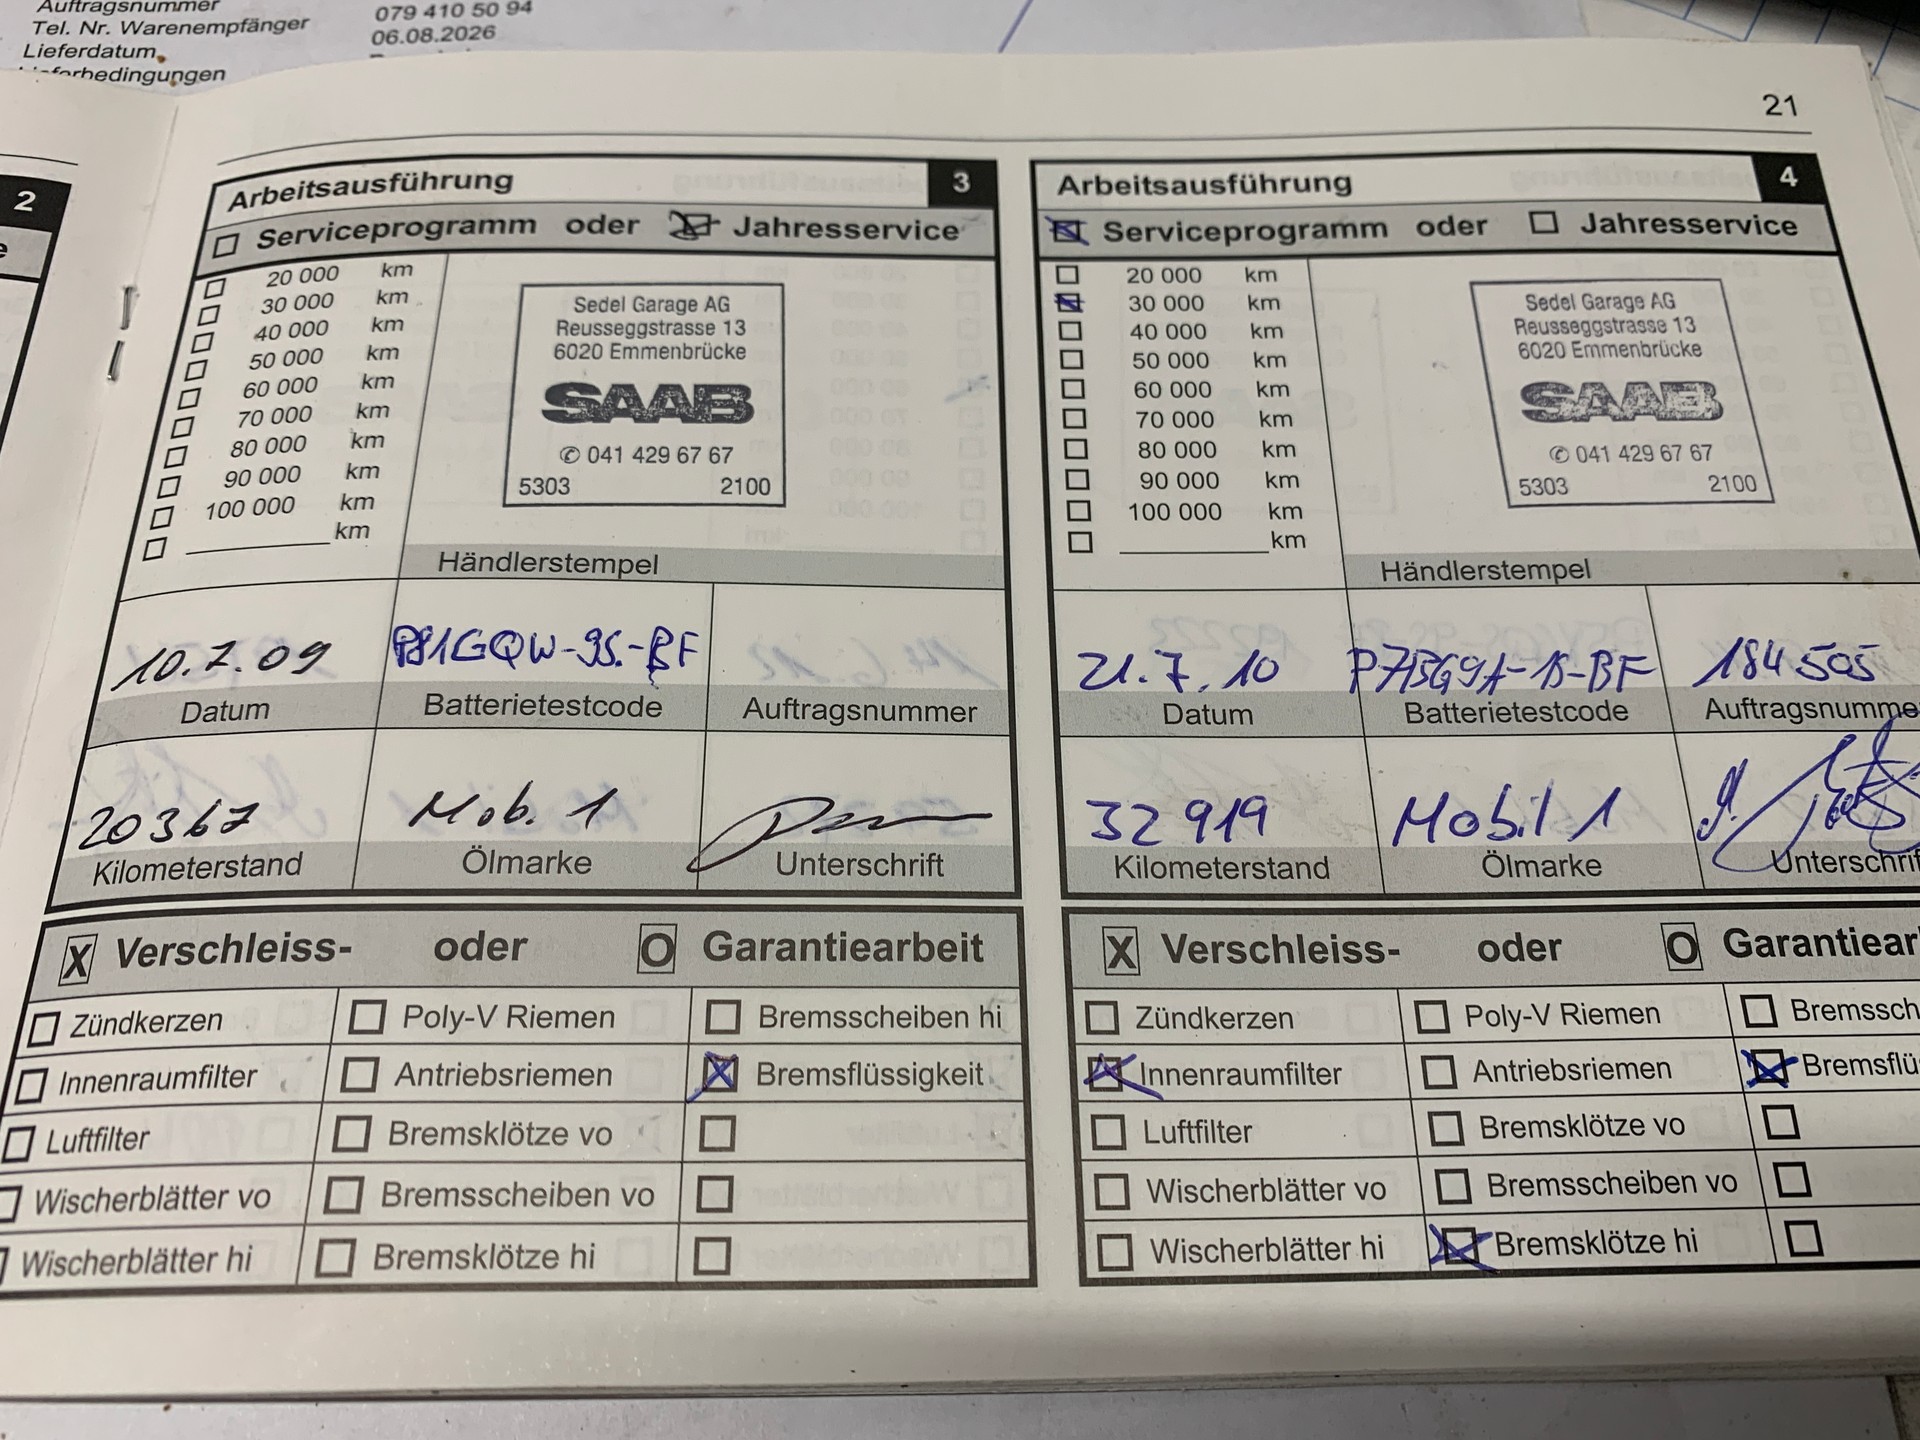 Auftragsnummer
Tel. Nr. Warenempfänger 079 410 50 94
Lieferdatum 06.08.2026
21
2
Arbeitsausführung 3
Serviceprogramm oder Jahresservice
20 000 km
30 000 km
40 000 km
50 000 km
60 000 km
70 000 km
80 000 km
90 000 km
100 000 km
km
Sedel Garage AG
Reusseggstrasse 13
6020 Emmenbrücke
SAAB
✆ 041 429 67 67
5303 2100
Händlerstempel
10.7.09
Datum Batterietestcode Auftragsnummer
20367 Mob. 1
Kilometerstand Ölmarke Unterschrift
X Verschleiss- oder O Garantiearbeit
Zündkerzen Poly-V Riemen Bremsscheiben hi
Innenraumfilter Antriebsriemen Bremsflüssigkeit
Luftfilter Bremsklötze vo
Wischerblätter vo Bremsscheiben vo
Wischerblätter hi Bremsklötze hi
Arbeitsausführung 4
Serviceprogramm oder Jahresservice
20 000 km
30 000 km
40 000 km
50 000 km
60 000 km
70 000 km
80 000 km
90 000 km
100 000 km
km
Sedel Garage AG
Reusseggstrasse 13
6020 Emmenbrücke
SAAB
✆ 041 429 67 67
5303 2100
Händlerstempel
21.7.10 184505
Datum Batterietestcode Auftragsnumme
32919 Mobil 1
Kilometerstand Ölmarke Unterschrif
X Verschleiss- oder O Garantiear
Zündkerzen Poly-V Riemen Bremssch
Innenraumfilter Antriebsriemen Bremsflü
Luftfilter Bremsklötze vo
Wischerblätter vo Bremsscheiben vo
Wischerblätter hi Bremsklötze hi